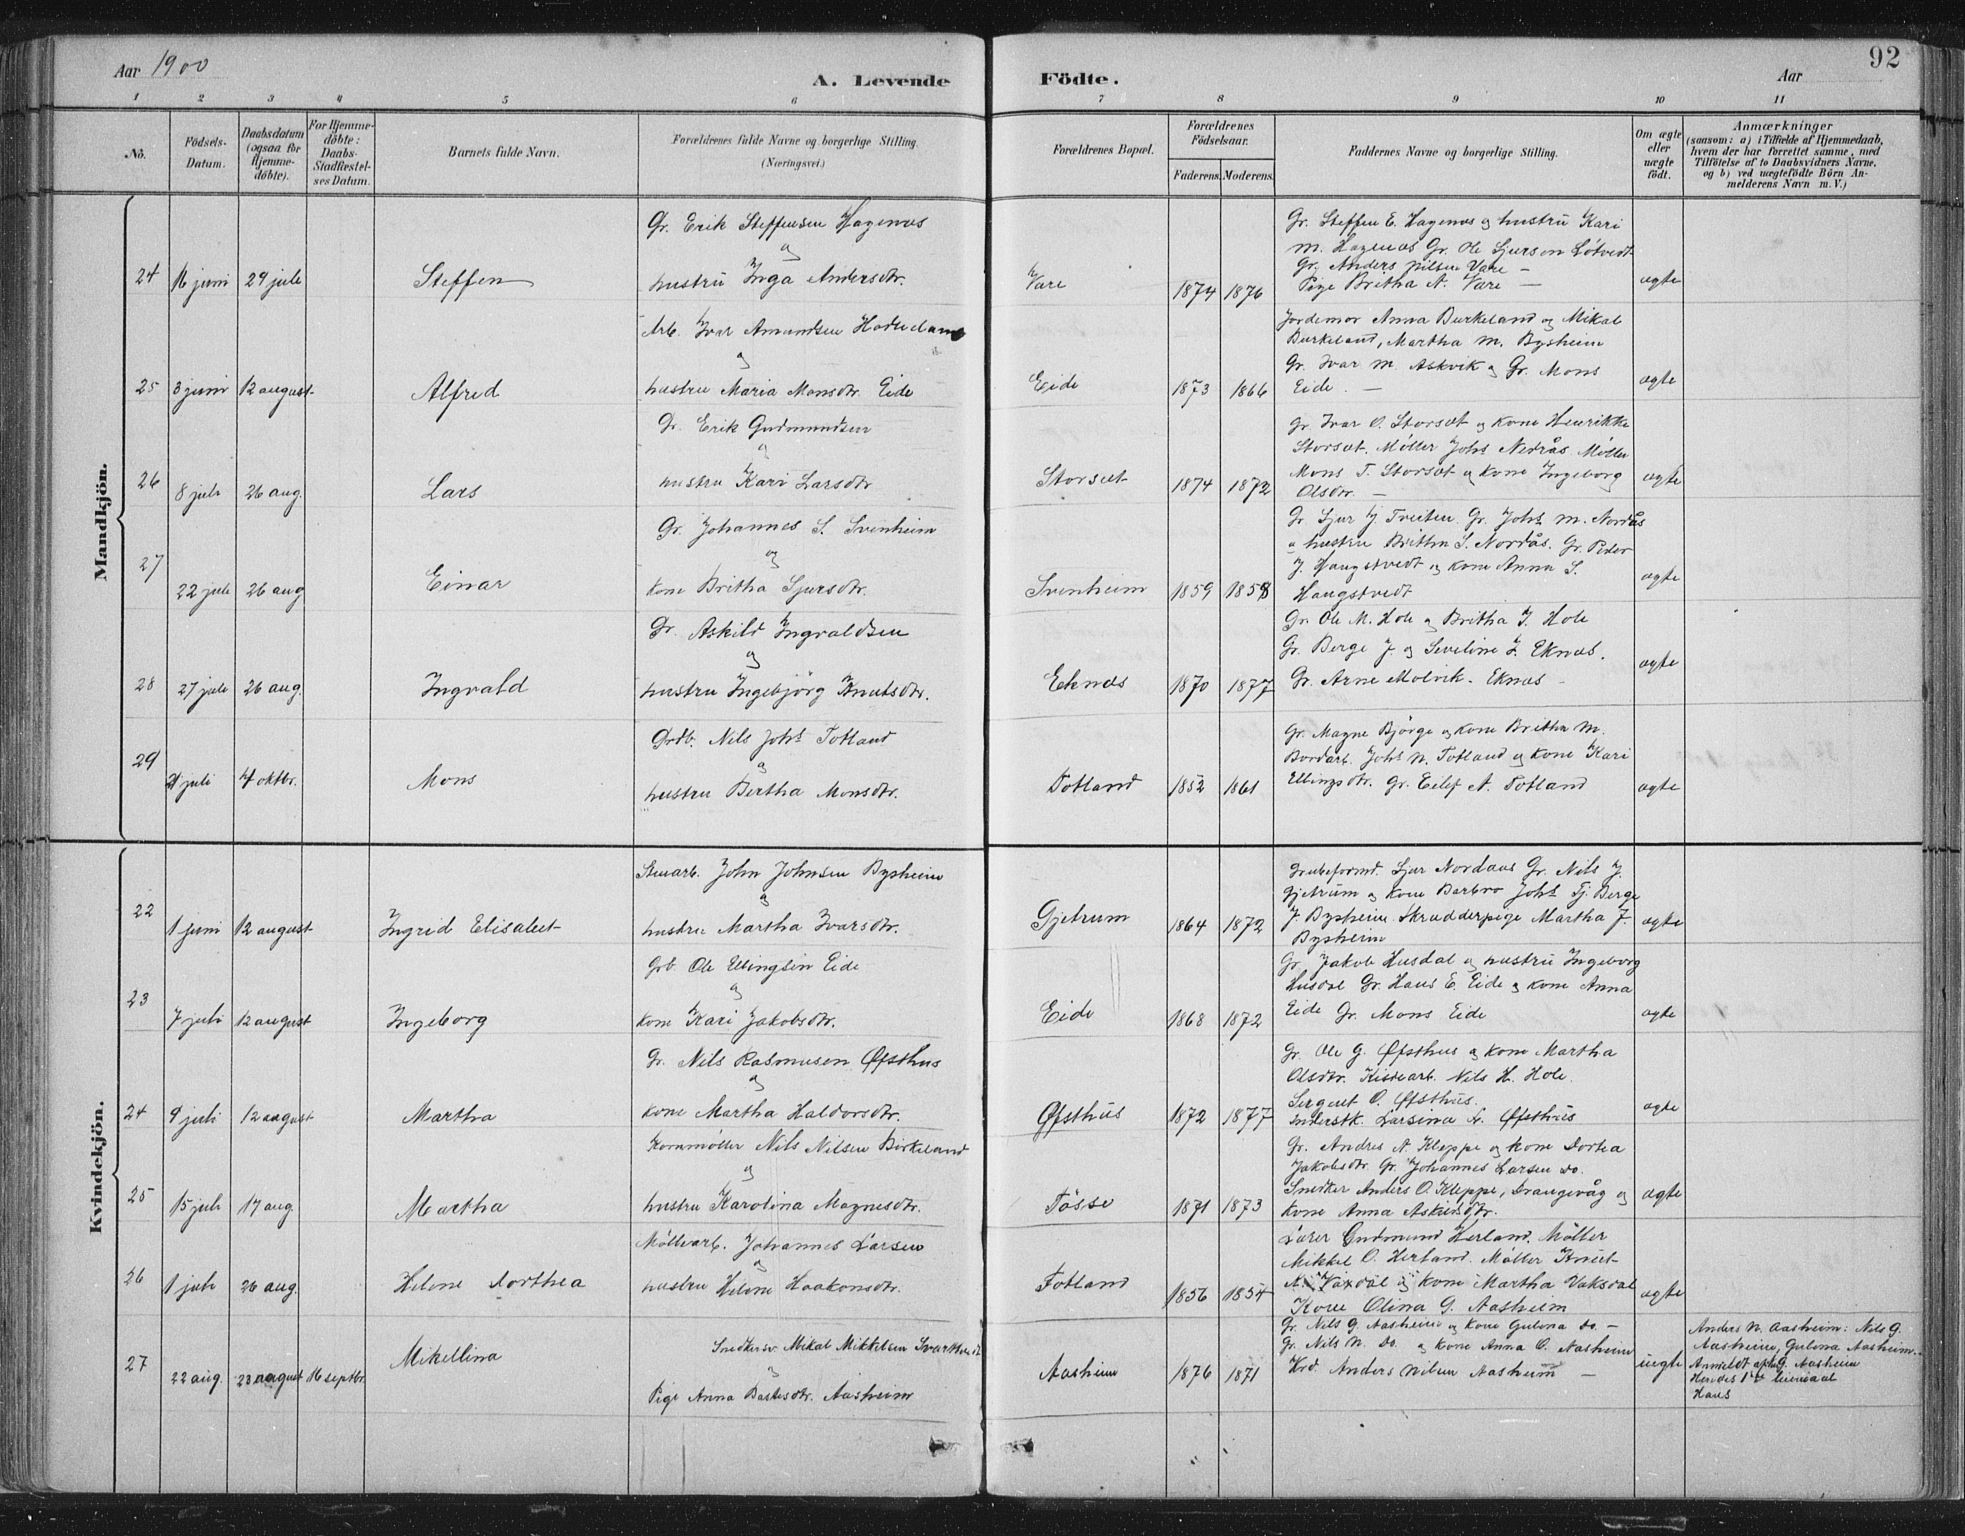 Aar 1900
A. Levende Födte.
Aar
92
1 2 3 4 5 6 7 8 9 10 11
No.
Födsels-Datum.
Daabsdatum (ogsaa for Hjemme-döbte).
For Hjemme-döbte: Daabs-Stadfæstel-ses Datum.
Barnets fulde Navn.
Forældrenes fulde Navne og borgerlige Stilling.
(Næringsvei.)
Forældrenes Bopæl.
Forældrenes Födselsaar.
Faderens. Moderens.
Faddernes Navne og borgerlige Stilling.
Om ægte eller uægte födt.
Anmærkninger
(saasom: a) i Tilfælde af Hjemmedaab, hvem der har forrettet samme, med Tilföielse af to Daabsvidners Navne, og b) ved uægtefödte Börn An-melderens Navn m. V.)
Mandkjön.
Gr. Erik Steffensen Hagenæs
og
24 16 juni 29 juli Steffen hustru Inga Andersdtr. Vare 1874 1876 ægte
Gr. Steffen E. Hagenæs og hustru Kari
M. Hagenæs Gr. Ole Sjurson Løtvedt
Gr. Anders Nilsen Vare —
Pige Britha A. Vare —
Arb. Ivar Amundsen
og
25 3 juni 12 august Alfred hustru Maria Monsdtr. Eide Eide 1873 1866 ægte
Jordemor Anna Burkeland og Mikal
Burkeland, Martha M. Bysheim
Gr. Ivar M. Askvik og Gr. Mons
Eide. —
Gr. Erik Gudmundsen
og
26 8 juli 26 aug. Lars hustru Kari Larsdtr Storsæt 1874 1872 ægte
Gr. Ivar O. Storsæt og kone Henrikke
Storsæt. Møller Johs Nedrås Møller
Mons T. Storsæt og kone Ingeborg
Olsdtr. —
Gr. Johannes S. Svenheim
og
27 22 juli 26 aug Einar kone Britha Sjursdtr. Svenheim 1859 1858 ægte
Gr Sjur J Tveiten Gr. Johs M. Nordås
og hustru Britha S. Nordås. Gr. Peder
J. Haugstvedt og kone Anna S.
Haugstvedt
Gr. Askild Ingvaldsen
og
28 27 juli 26 aug. Ingvald hustru Ingebjörg Knutsdtr. Eknæs 1870 1877 ægte
Gr. Ole M. Hole og Britha J. Hole
Gr. Berge J. og Seveline J. Eknæs.
Gr. Arne Molvik. Eknæs —
Grdb. Nils Johs Totland
og
29 juli 4 oktbr. Mons hustru Bertha Monsdtr. Totland 1852 1861 ægte
Gr. Magne Björge og kone Britha M.
Bordarb. Johs N. Totland og kone Kari
Ellingsdtr. Gr. Eilef A. Totland
Kvindekjön.
Stenarb. John Johnsen Bysheim
og
22 1 juni 12 august Ingrid Elisabet hustru Martha Ivarsdtr. Gjetrum 1864 1872 ægte
Grubeformd. Sjur Nordaas Gr. Nils J.
Gjetrum og kone Barbro Johs Tj. Berge
J. Bysheim Skrædderpige Martha J.
Bysheim
Grb. Ole Ellingsen Eide
og
23 7 juli 12 august Ingeborg kone Kari Jakobsdtr. Eide 1868 1872 ægte
Gr. Jakob Husdal og hustru Ingeborg
Husdal Gr. Hans E. Eide og kone Anna
Eide Gr. Mons Eide
Gr. Nils Rasmusen Øfsthus
og
24 9 juli 12 august Martha kone Martha Haldorsdtr. Øfsthus 1872 1877 ægte
Gr. Ole G. Øfsthus og kone Martha
Olsdtr. Kistearb. Nils H. Hole.
Sergent O. Øfsthus.
Inderstk. Larsina A. Øfsthus
Kornmøller Nils Nilsen Birkeland
og
25 15 juli 17 aug Martha hustru Karolina Magnesdtr. Tösse 1871 1873 ægte
Gr. Andres A. Kleppe og kone Dortea
Jakobsdtr. Gr. Johannes Larsen do.
Snedker Anders O. Kleppe, Drangevåg og
kone Anna Askildsdtr.
Möllearb. Johannes Larsen
og
26 1 juli 26 aug. Helene Dorthea hustru Helene Haakonsdtr. Totland 1856 1854 ægte
Lærer Gudmund Herland. Møller
Mikkel O. Herland. Møller Knut
A. Vaxdal og kone Martha Vaksdal
Kone Olina G. Aasheim
Snedkersv. Mikal Mikkelsen
og
27 22 aug. 23 august 16 septbr. Mikellina Pige Anna Aasheim Aasheim 1876 1871 uægte
Gr. Nils G. Aasheim og kone Gulena do. —
Gr. Nils N. do. og kone Anna O. Aasheim
Krd. Anders Nilsen Aasheim —
Anders N. Aasheim: Nils G.
Aasheim, Gulena Aasheim.
Anmeldt af G. Aasheim
Hendes 1ste
Hans